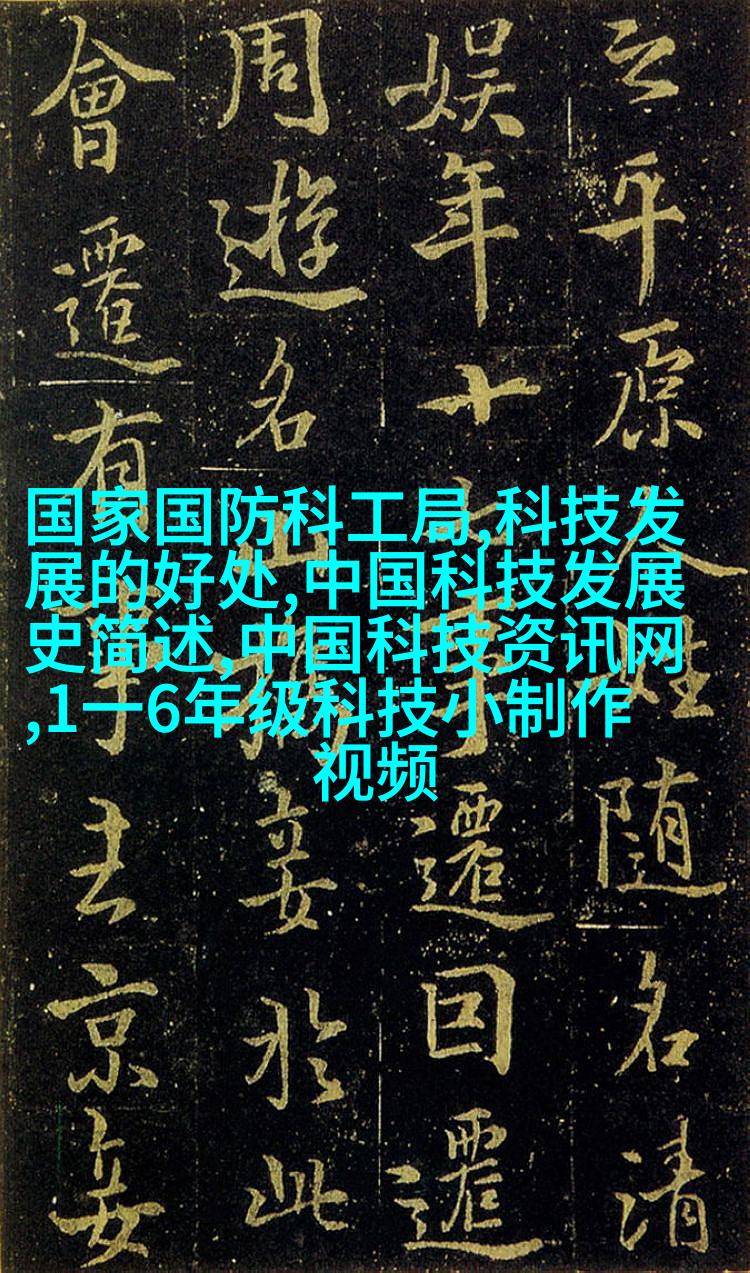 国家国防科工局,科技发
展的好处,中国科技发展
史简述,中国科技资讯网
,1一6年级科技小制作
视频
之平原人姓随名清
娱年十七事遷囙遷
周遊名山携妾於此
會遷有事去京妾